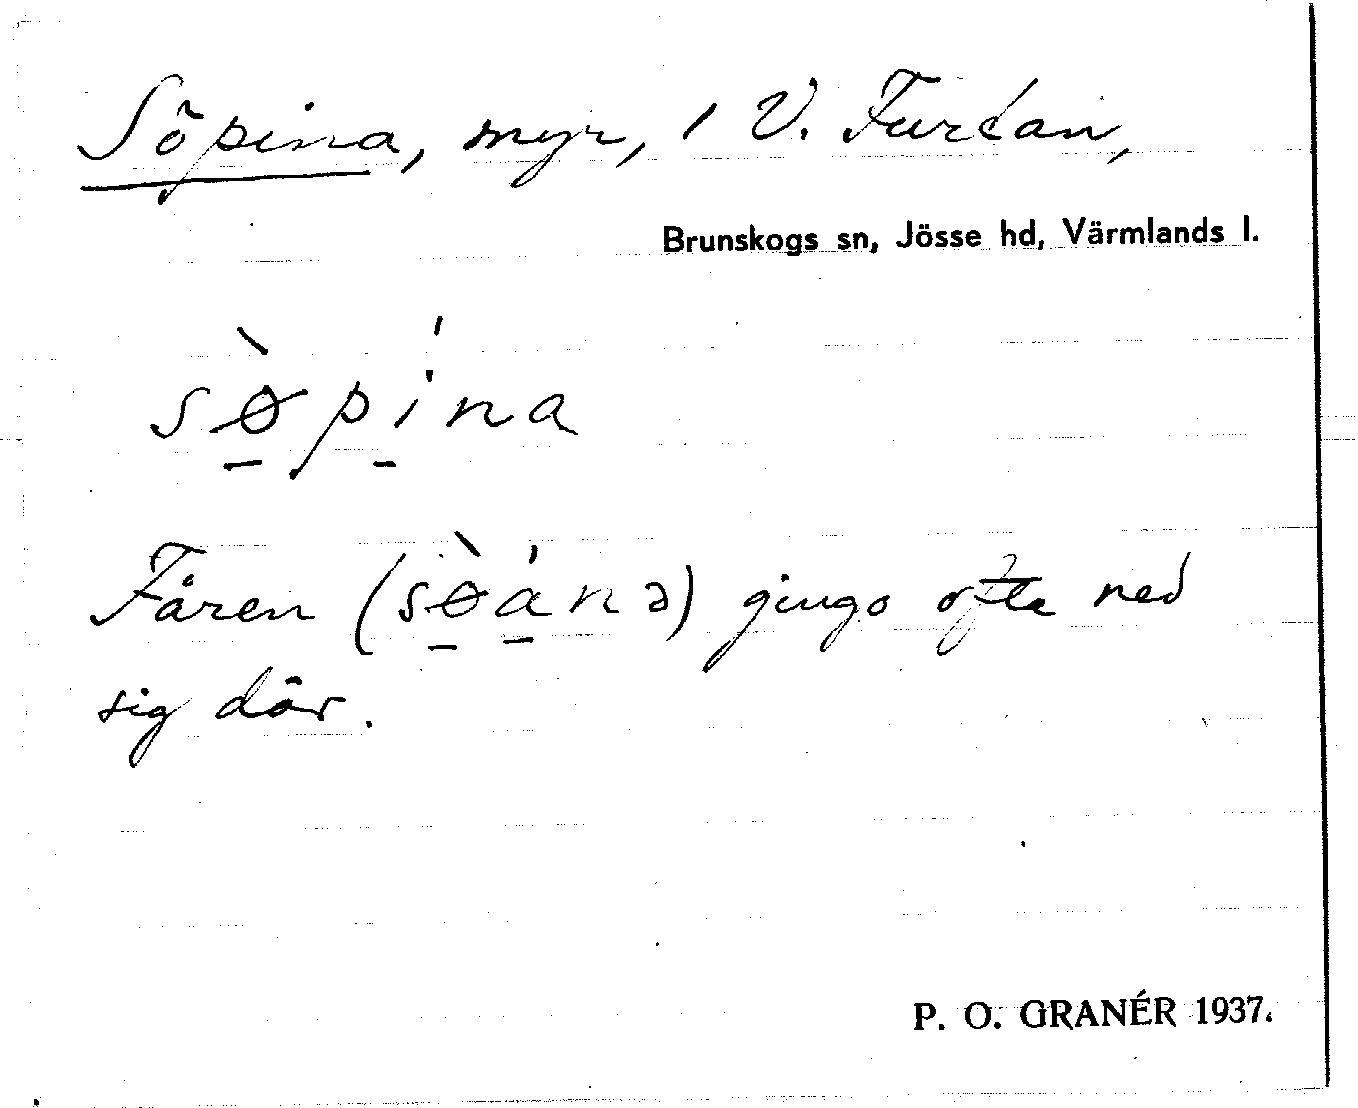 Söpina, myr, i V. Furtan,
Brunskogs sn, Jösse hd, Värmlands l.
sø̠̀pí̠na
Fåren (sø̠̀á̠nə) gingo ofta ned
sig där.
P. O. GRANÉR 1937.